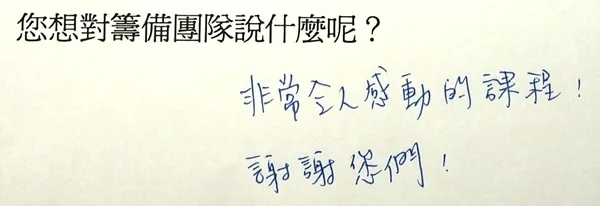 您想對籌備團隊說什麼呢？
非常令人感動的課程！
謝謝您們！